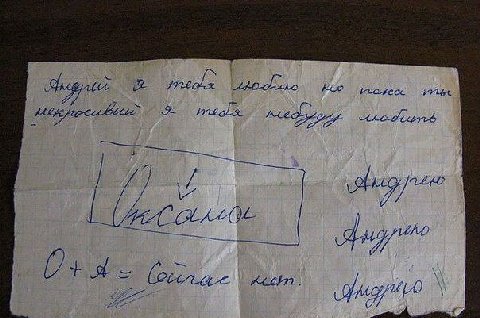 Андрей я тебя люблю но пока ты
некрасивый я тебя небуду любить
Оксана
Андрею
Андрею
О + А = Сейчас нет.
Андрею